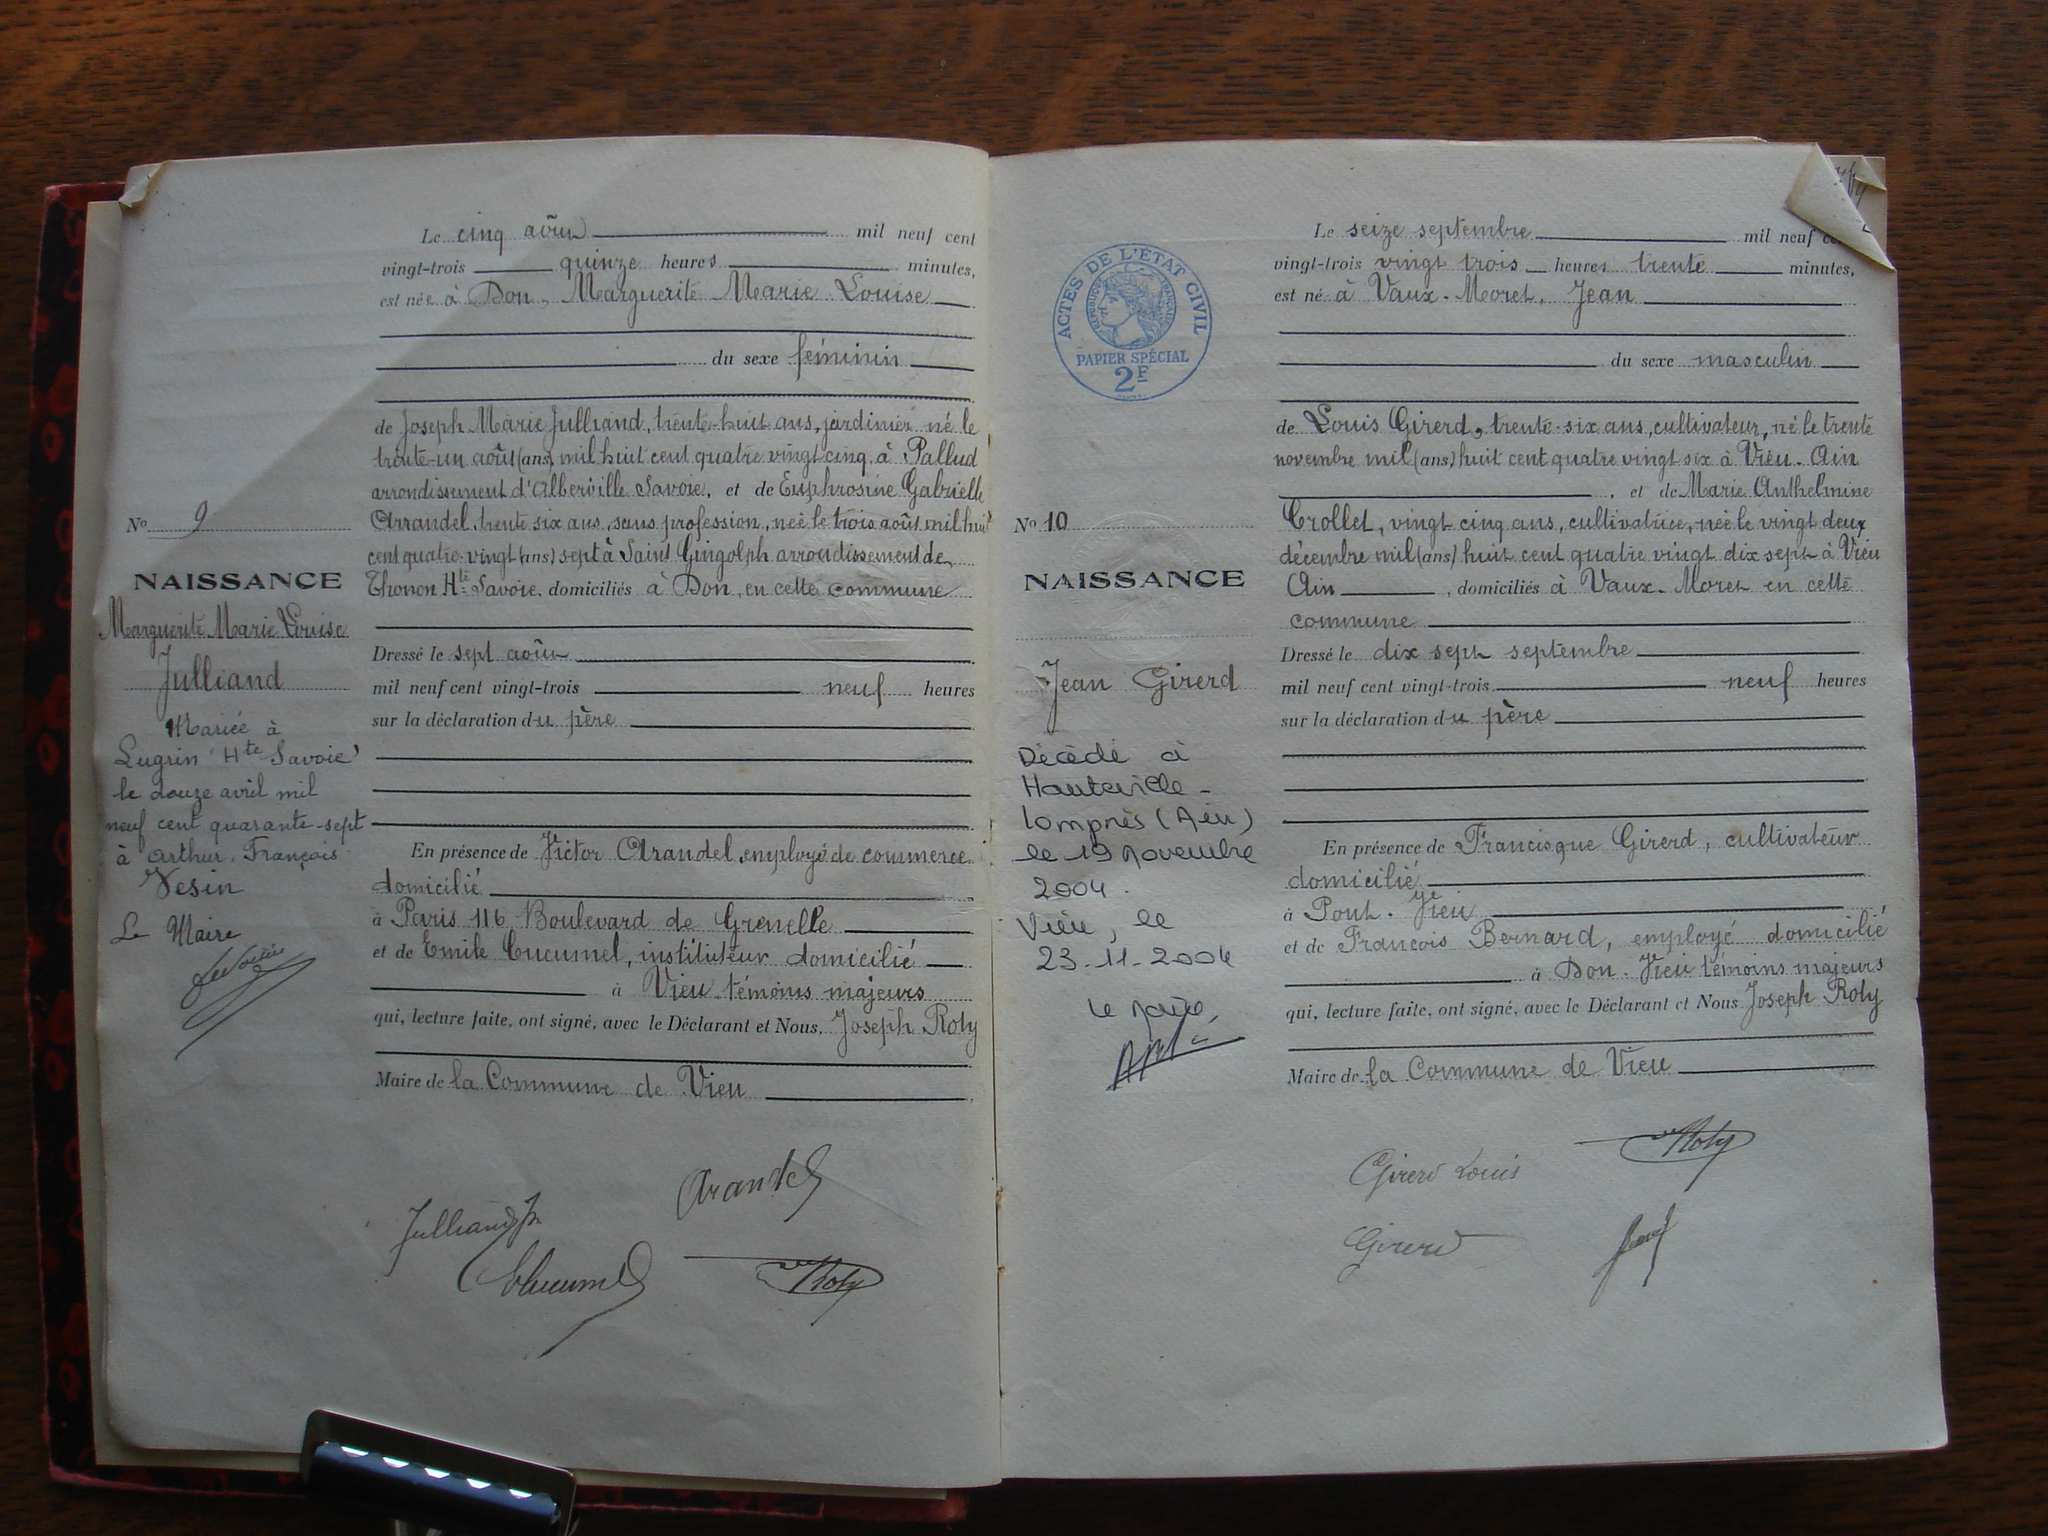 Le cinq août mil neuf cent
vingt-trois quinze heures minutes,
est née à Don, Marguerite Marie Louise
du sexe féminin
de Joseph Marie Julliand, trente-huit ans, jardinier né le
trente-un août (ans) mil huit cent quatre vingt cinq à Pallud
arrondissement d'Alberville Savoie, et de Euphrosine Gabrielle
Arrandel, trente six ans, sans profession, née le trois août mil huit
cent quatre-vingt (ans) sept à Saint Gingolph arrondissement de
Thonon Hte Savoie, domiciliés à Don, en cette commune
Dressé le sept août
mil neuf cent vingt-trois neuf heures
sur la déclaration du père
En présence de Victor Arandel employé de commerce
domicilié
à Paris 116 Boulevard de Grenelle
et de Emile Cucumel, instituteur domicilié
à Vieu témoins majeurs
qui, lecture faite, ont signé, avec le Déclarant et Nous, Joseph Roty
Maire de la Commune de Vieu
No 9
NAISSANCE
Marguerite Marie Louise
Julliand
Mariée à
Lugrin (Hte Savoie)
le douze avril mil
neuf cent quarante-sept
à Arthur François
Vesin
Le Maire
Julliand Jh
Arandel
Cucumel
Roty
ACTES DE L'ÉTAT CIVIL
RÉPUBLIQUE FRANÇAISE
PAPIER SPÉCIAL
2F
Le seize septembre mil neuf cent
vingt-trois vingt trois heures trente minutes,
est né à Vaux-Moret, Jean
du sexe masculin
de Louis Girerd, trente-six ans, cultivateur, né le trente
novembre mil (ans) huit cent quatre vingt six à Vieu-Ain
, et de Marie Anthelmine
Crollet, vingt cinq ans, cultivatrice, née le vingt deux
décembre mil (ans) huit cent quatre vingt dix sept à Vieu
Ain , domiciliés à Vaux-Moret en cette
commune
Dressé le dix sept septembre
mil neuf cent vingt-trois neuf heures
sur la déclaration du père
En présence de Francisque Girerd, cultivateur
domicilié
à Pont-Vieu
et de François Bernard, employé domicilié
à Don-Vieu témoins majeurs
qui, lecture faite, ont signé, avec le Déclarant et Nous Joseph Roty
Maire de la Commune de Vieu
No 10
NAISSANCE
Jean Girerd
Décédé à
Hauteville-
Lompnès (Ain)
le 19 novembre
2004.
Vieu, le
23-11-2004
Le Maire,
Girerd Louis
Roty
Girerd